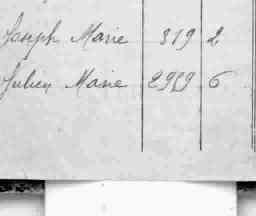 Joseph Marie 319 2
Julien Marie 2989 6